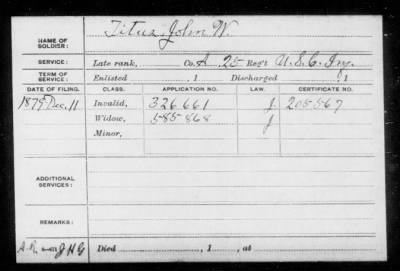 NAME OF SOLDIER: Titus, John W.
SERVICE: Late rank, Co. A 25 Reg't U.S.C. Inf.
TERM OF SERVICE: Enlisted , 1 Discharged , 1
DATE OF FILING. CLASS. APPLICATION NO. LAW. CERTIFICATE NO.
1879 Dec. 11 Invalid, 326 661 J. 205567
Widow, 585 868 J
Minor,
ADDITIONAL SERVICES:
REMARKS:
JHG Died , 1 , at